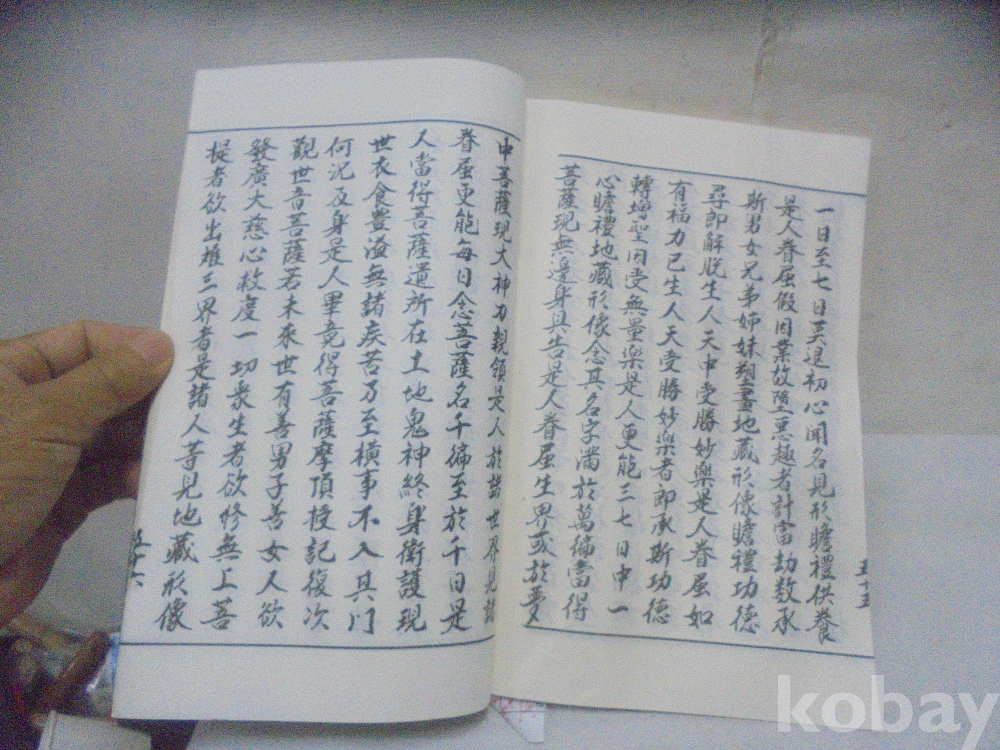 一日至七日莫退初心聞名見形瞻禮供養
是人眷屬假因業故墮惡趣者計當劫數承
斯男女兄弟姊妹塑畫地藏形像瞻禮功德
尋即解脫生人天中受勝妙樂是人眷屬如
有福力已生人天受勝妙樂者即承斯功德
轉增聖因受無量樂是人更能三七日中一
心瞻禮地藏形像念其名字滿於萬徧當得
菩薩現無邊身具告是人眷屬生界或於夢
五十五
中菩薩現大神力親領是人於諸世界見諸
眷屬更能每日念菩薩名千徧至於千日是
人當得菩薩遣所在土地鬼神終身衛護現
世衣食豐溢無諸疾苦乃至橫事不入其門
何況及身是人畢竟得菩薩摩頂授記復次
觀世音菩薩若未來世有善男子善女人欲
發廣大慈心救度一切眾生者欲修無上菩
提者欲出離三界者是諸人等見地藏形像
五十六
kobay